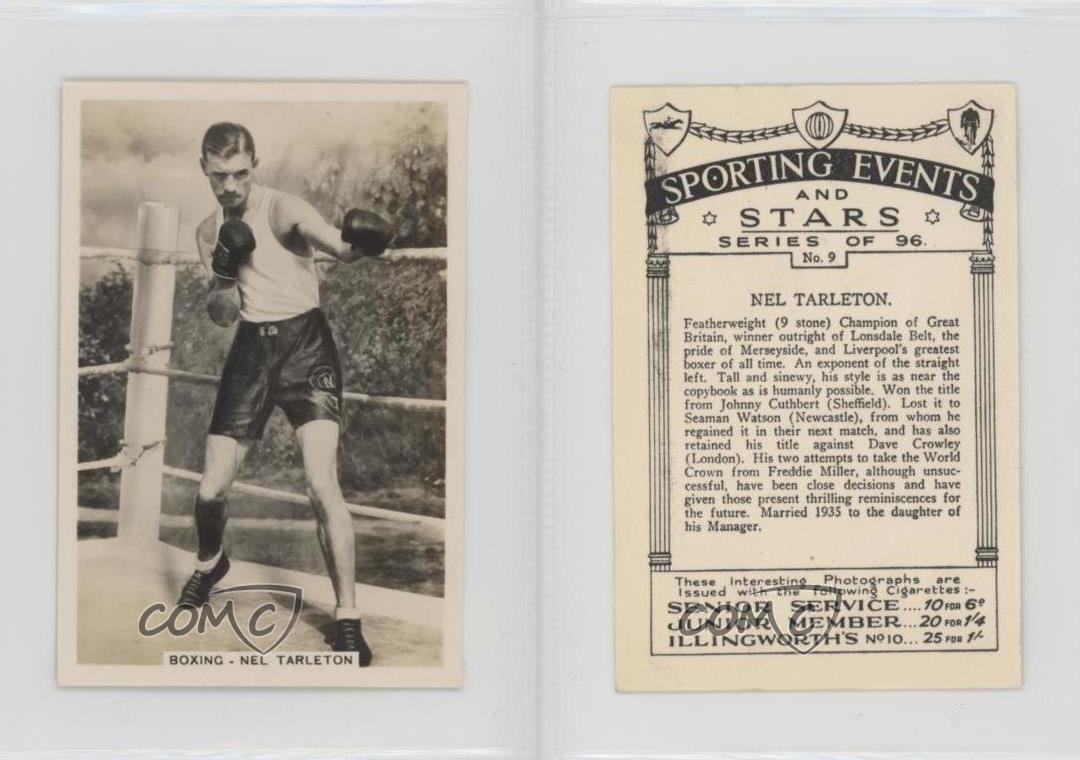 BOXING - NEL TARLETON
COMC
SPORTING EVENTS
AND
STARS
SERIES OF 96.
No. 9
NEL TARLETON.
Featherweight (9 stone) Champion of Great
Britain, winner outright of Lonsdale Belt, the
pride of Merseyside, and Liverpool's greatest
boxer of all time. An exponent of the straight
left. Tall and sinewy, his style is as near the
copybook as is humanly possible. Won the title
from Johnny Cuthbert (Sheffield). Lost it to
Seaman Watson (Newcastle), from whom he
regained it in their next match, and has also
retained his title against Dave Crowley
(London). His two attempts to take the World
Crown from Freddie Miller, although unsuc-
cessful, have been close decisions and have
given those present thrilling reminiscences for
the future. Married 1935 to the daughter of
his Manager.
These Interesting Photographs are
Issued with the following Cigarettes:-
SENIOR SERVICE....10 FOR 6D
JUNIOR MEMBER...20 FOR 1/4
ILLINGWORTH'S No10...25 FOR 1/-
COMC